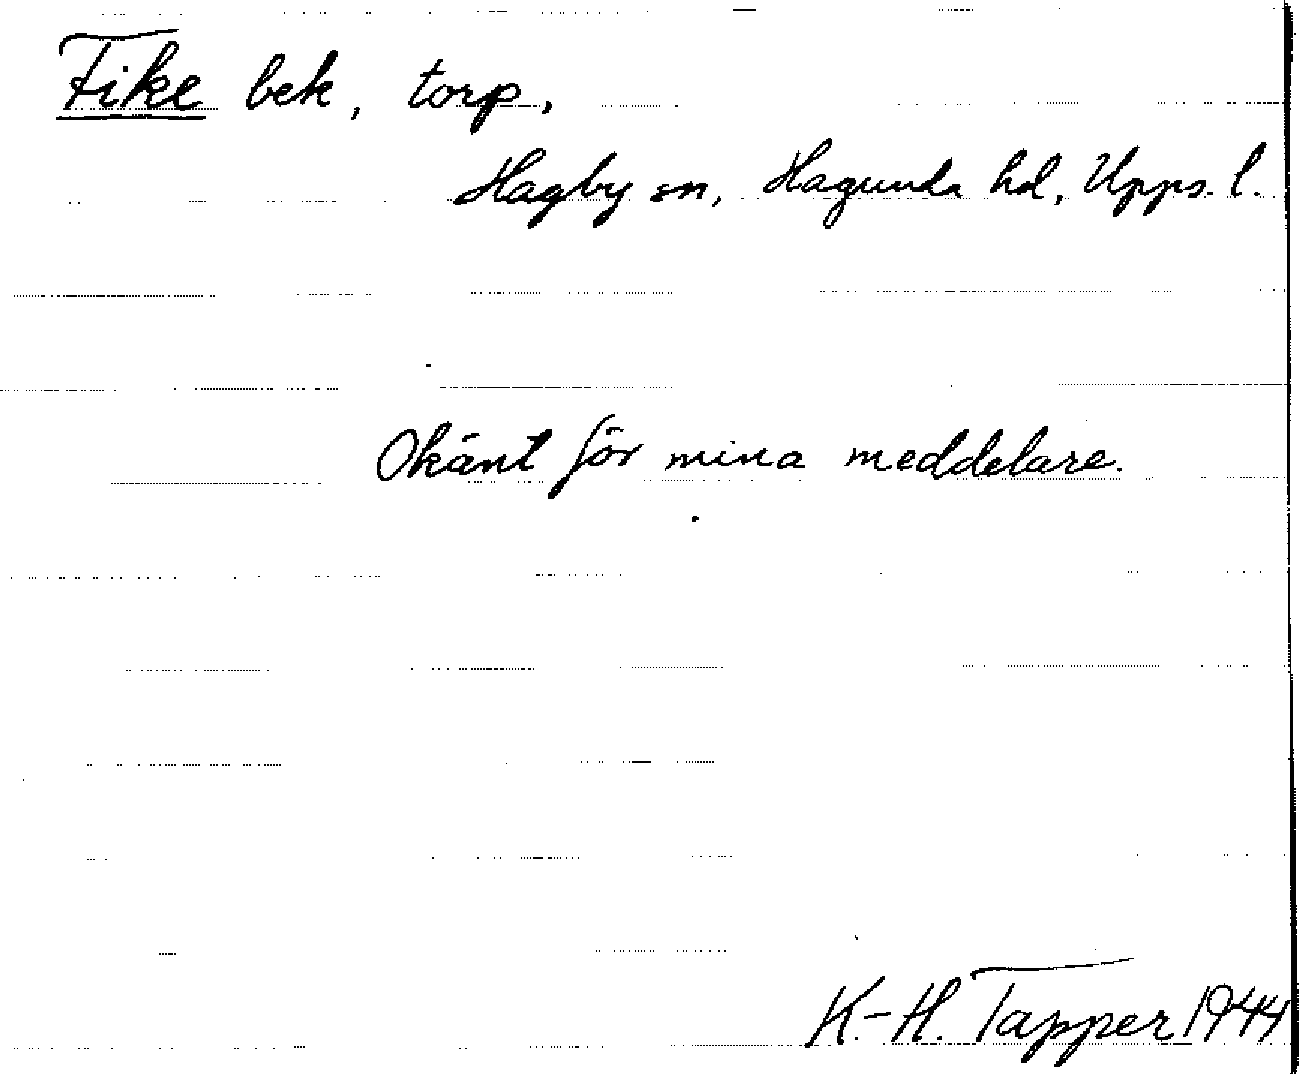 Fike bek, torp,
Hagby sn, Hagunda hd, Upps. l.
Okänt för mina meddelare.
K.-H. Tapper 1944